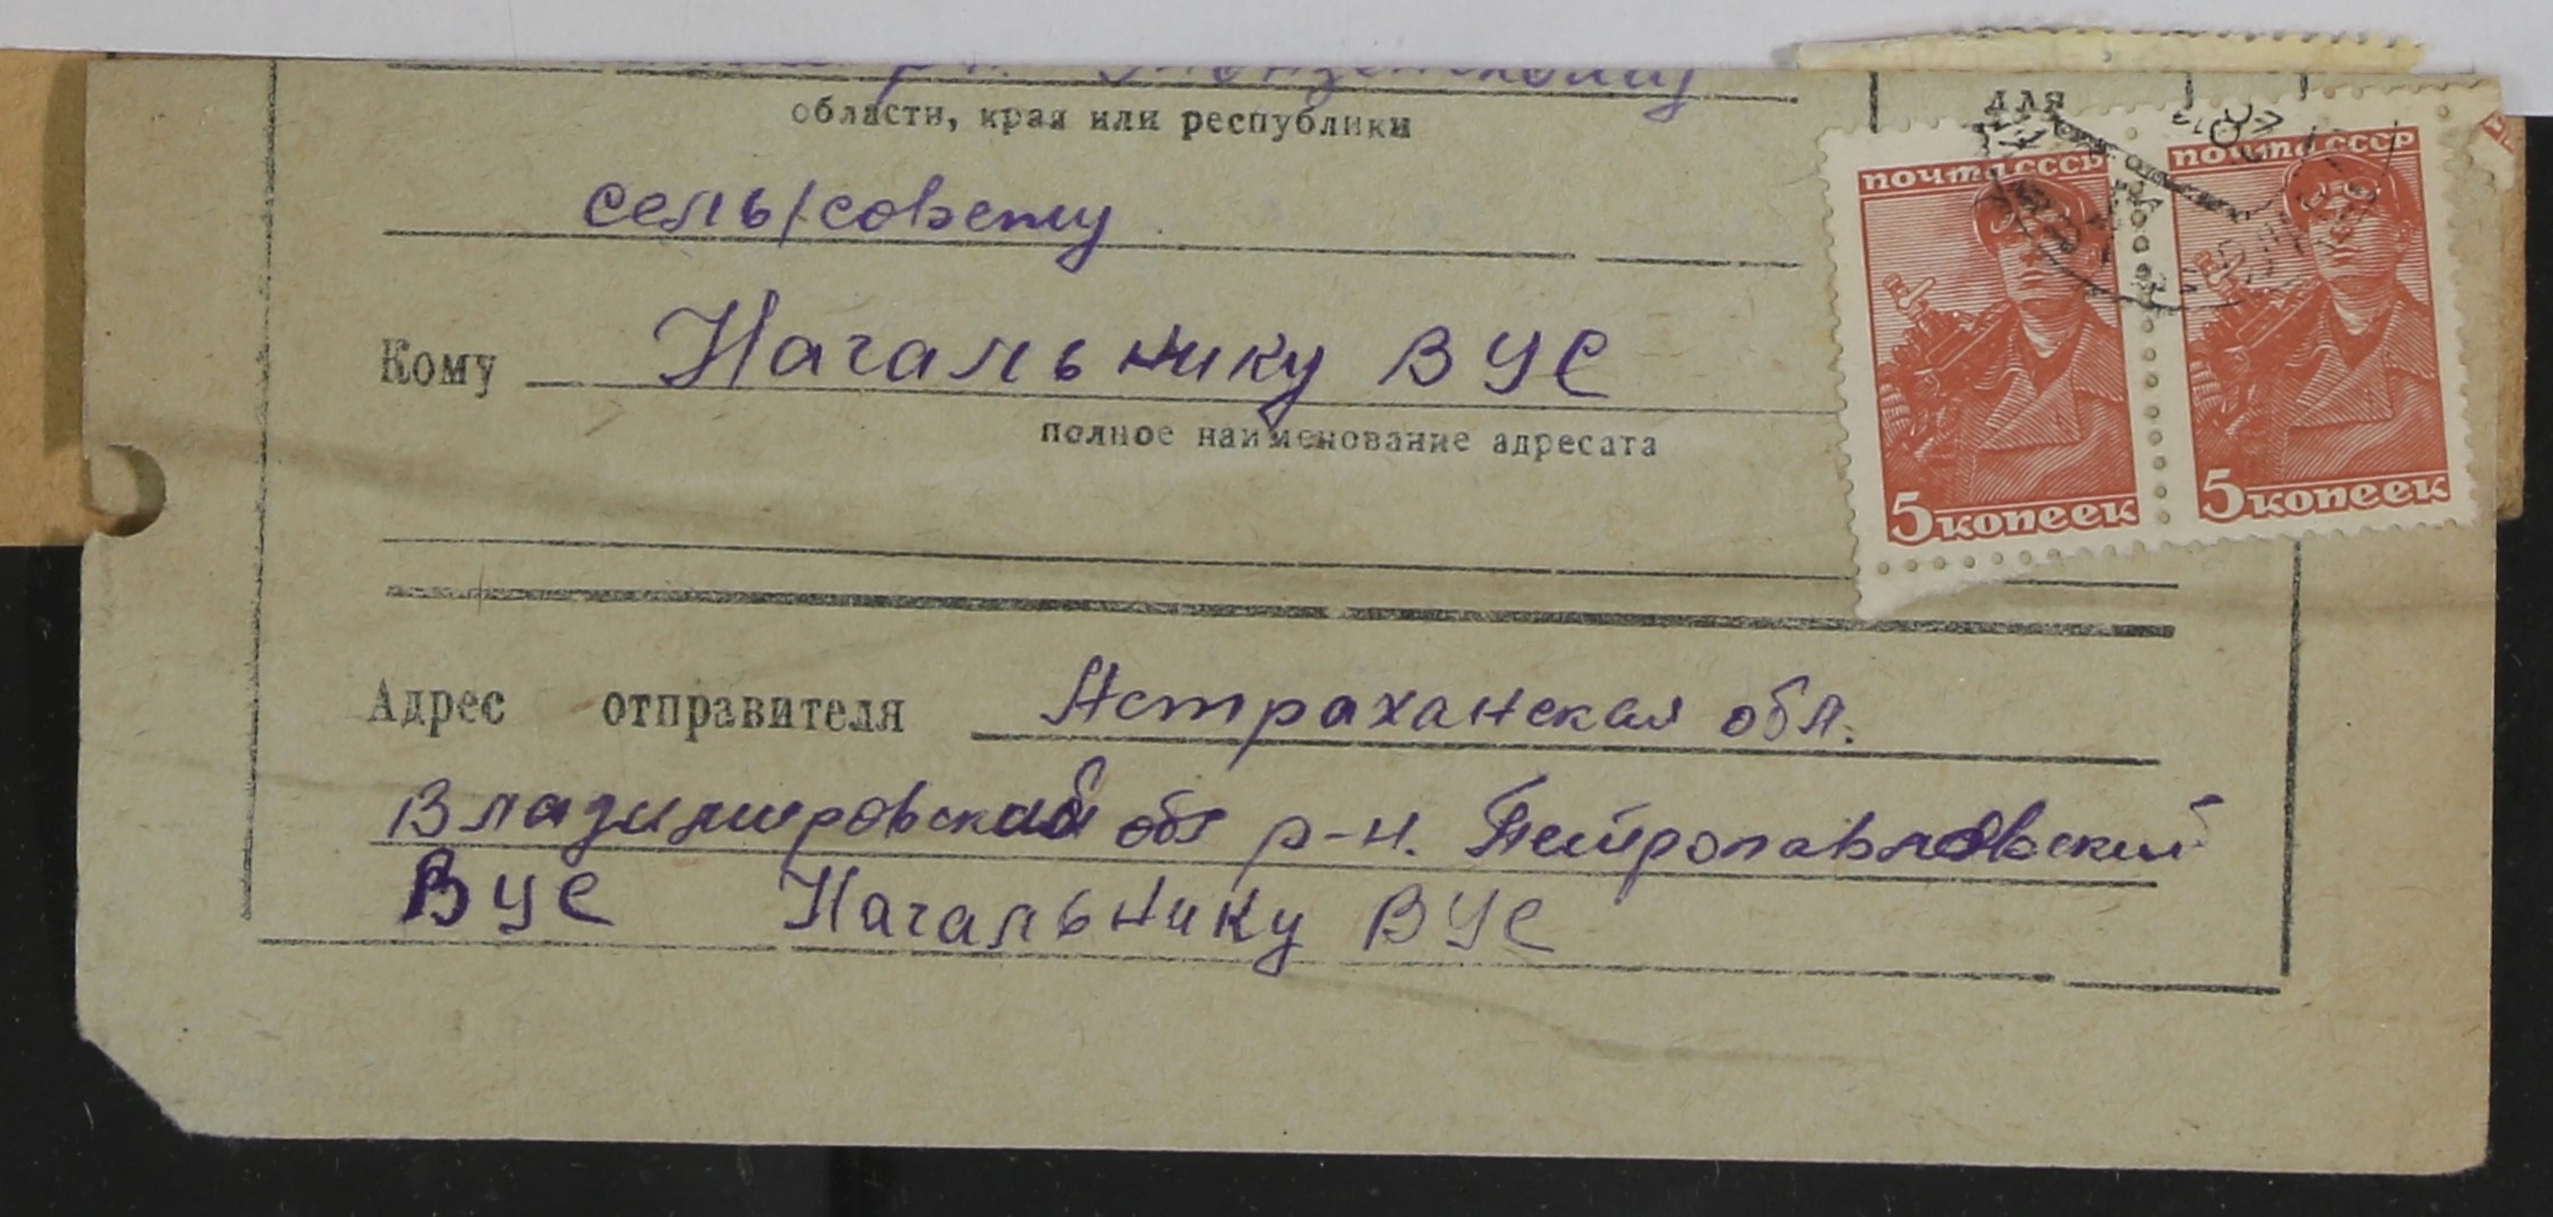 области, края или республики
для
сель/совету
Кому Начальнику ВУС
полное наименование адресата
почта ссср
5 копеек
почта ссср
5 копеек
Адрес отправителя Астраханская обл.
Владимировский р-н. Петропавловский
ВУС Начальнику ВУС